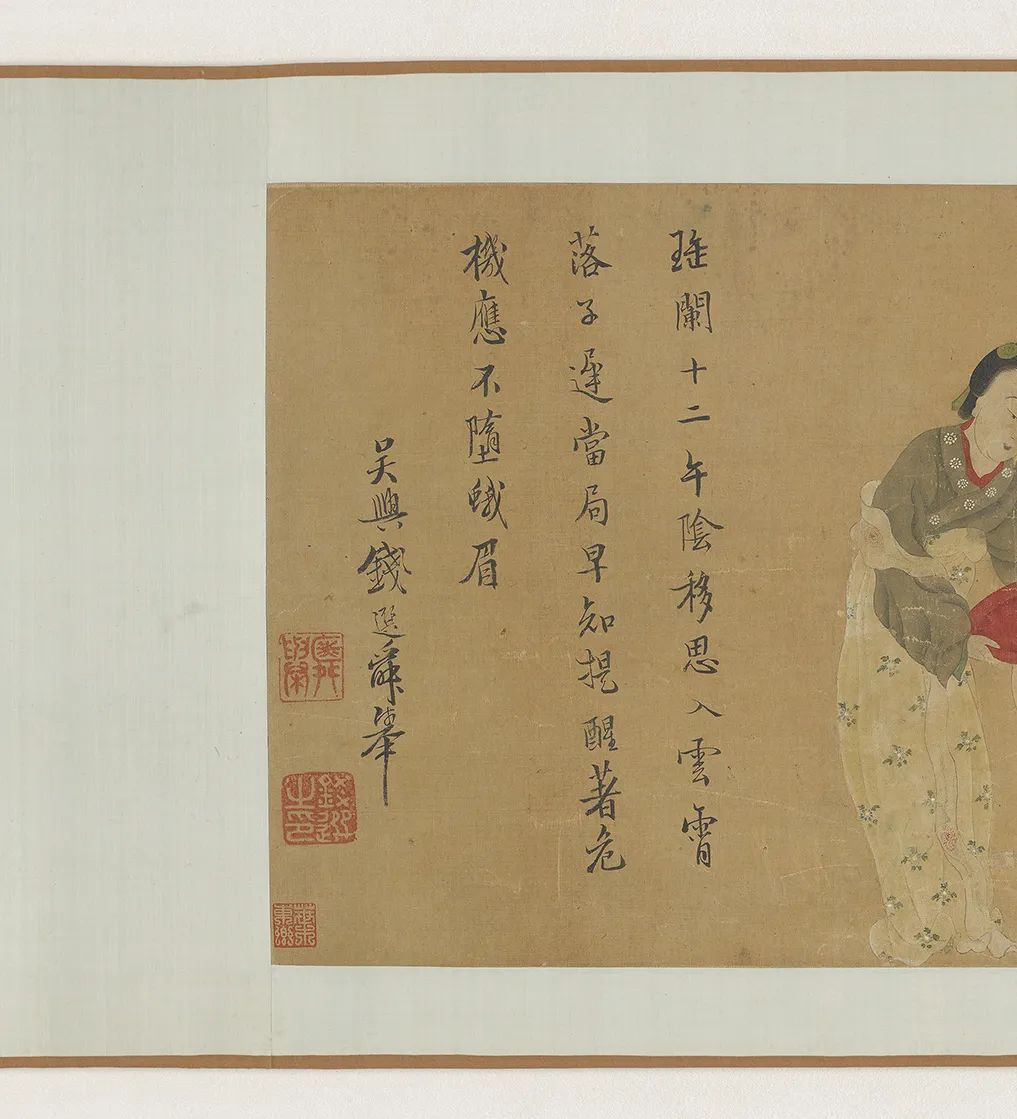 瑤闌十二午陰移思入雲霄
落子遲當局早知提醒著危
機應不墮蛾眉
吳興錢選舜舉
錢選之印